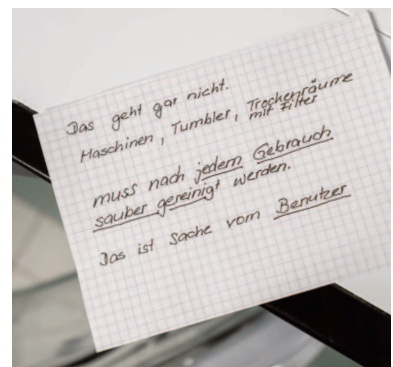 Das geht gar nicht.
Maschinen, Tumbler, Trockenräume
mit Filter
muss nach jedem Gebrauch
sauber gereinigt werden.
Das ist Sache vom Benutzer